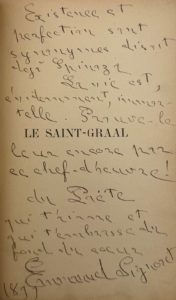 Existence et
perfection sont
synonymes disait
déjà Spinoza
La vie est,
évidemment, immor-
telle. Prouve-le
LE SAINT-GRAAL
leur encore par
ce chef-d'œuvre!
du Poète
qui t'aime et
qui t'embrasse du
fond du cœur
Emmanuel Signoret